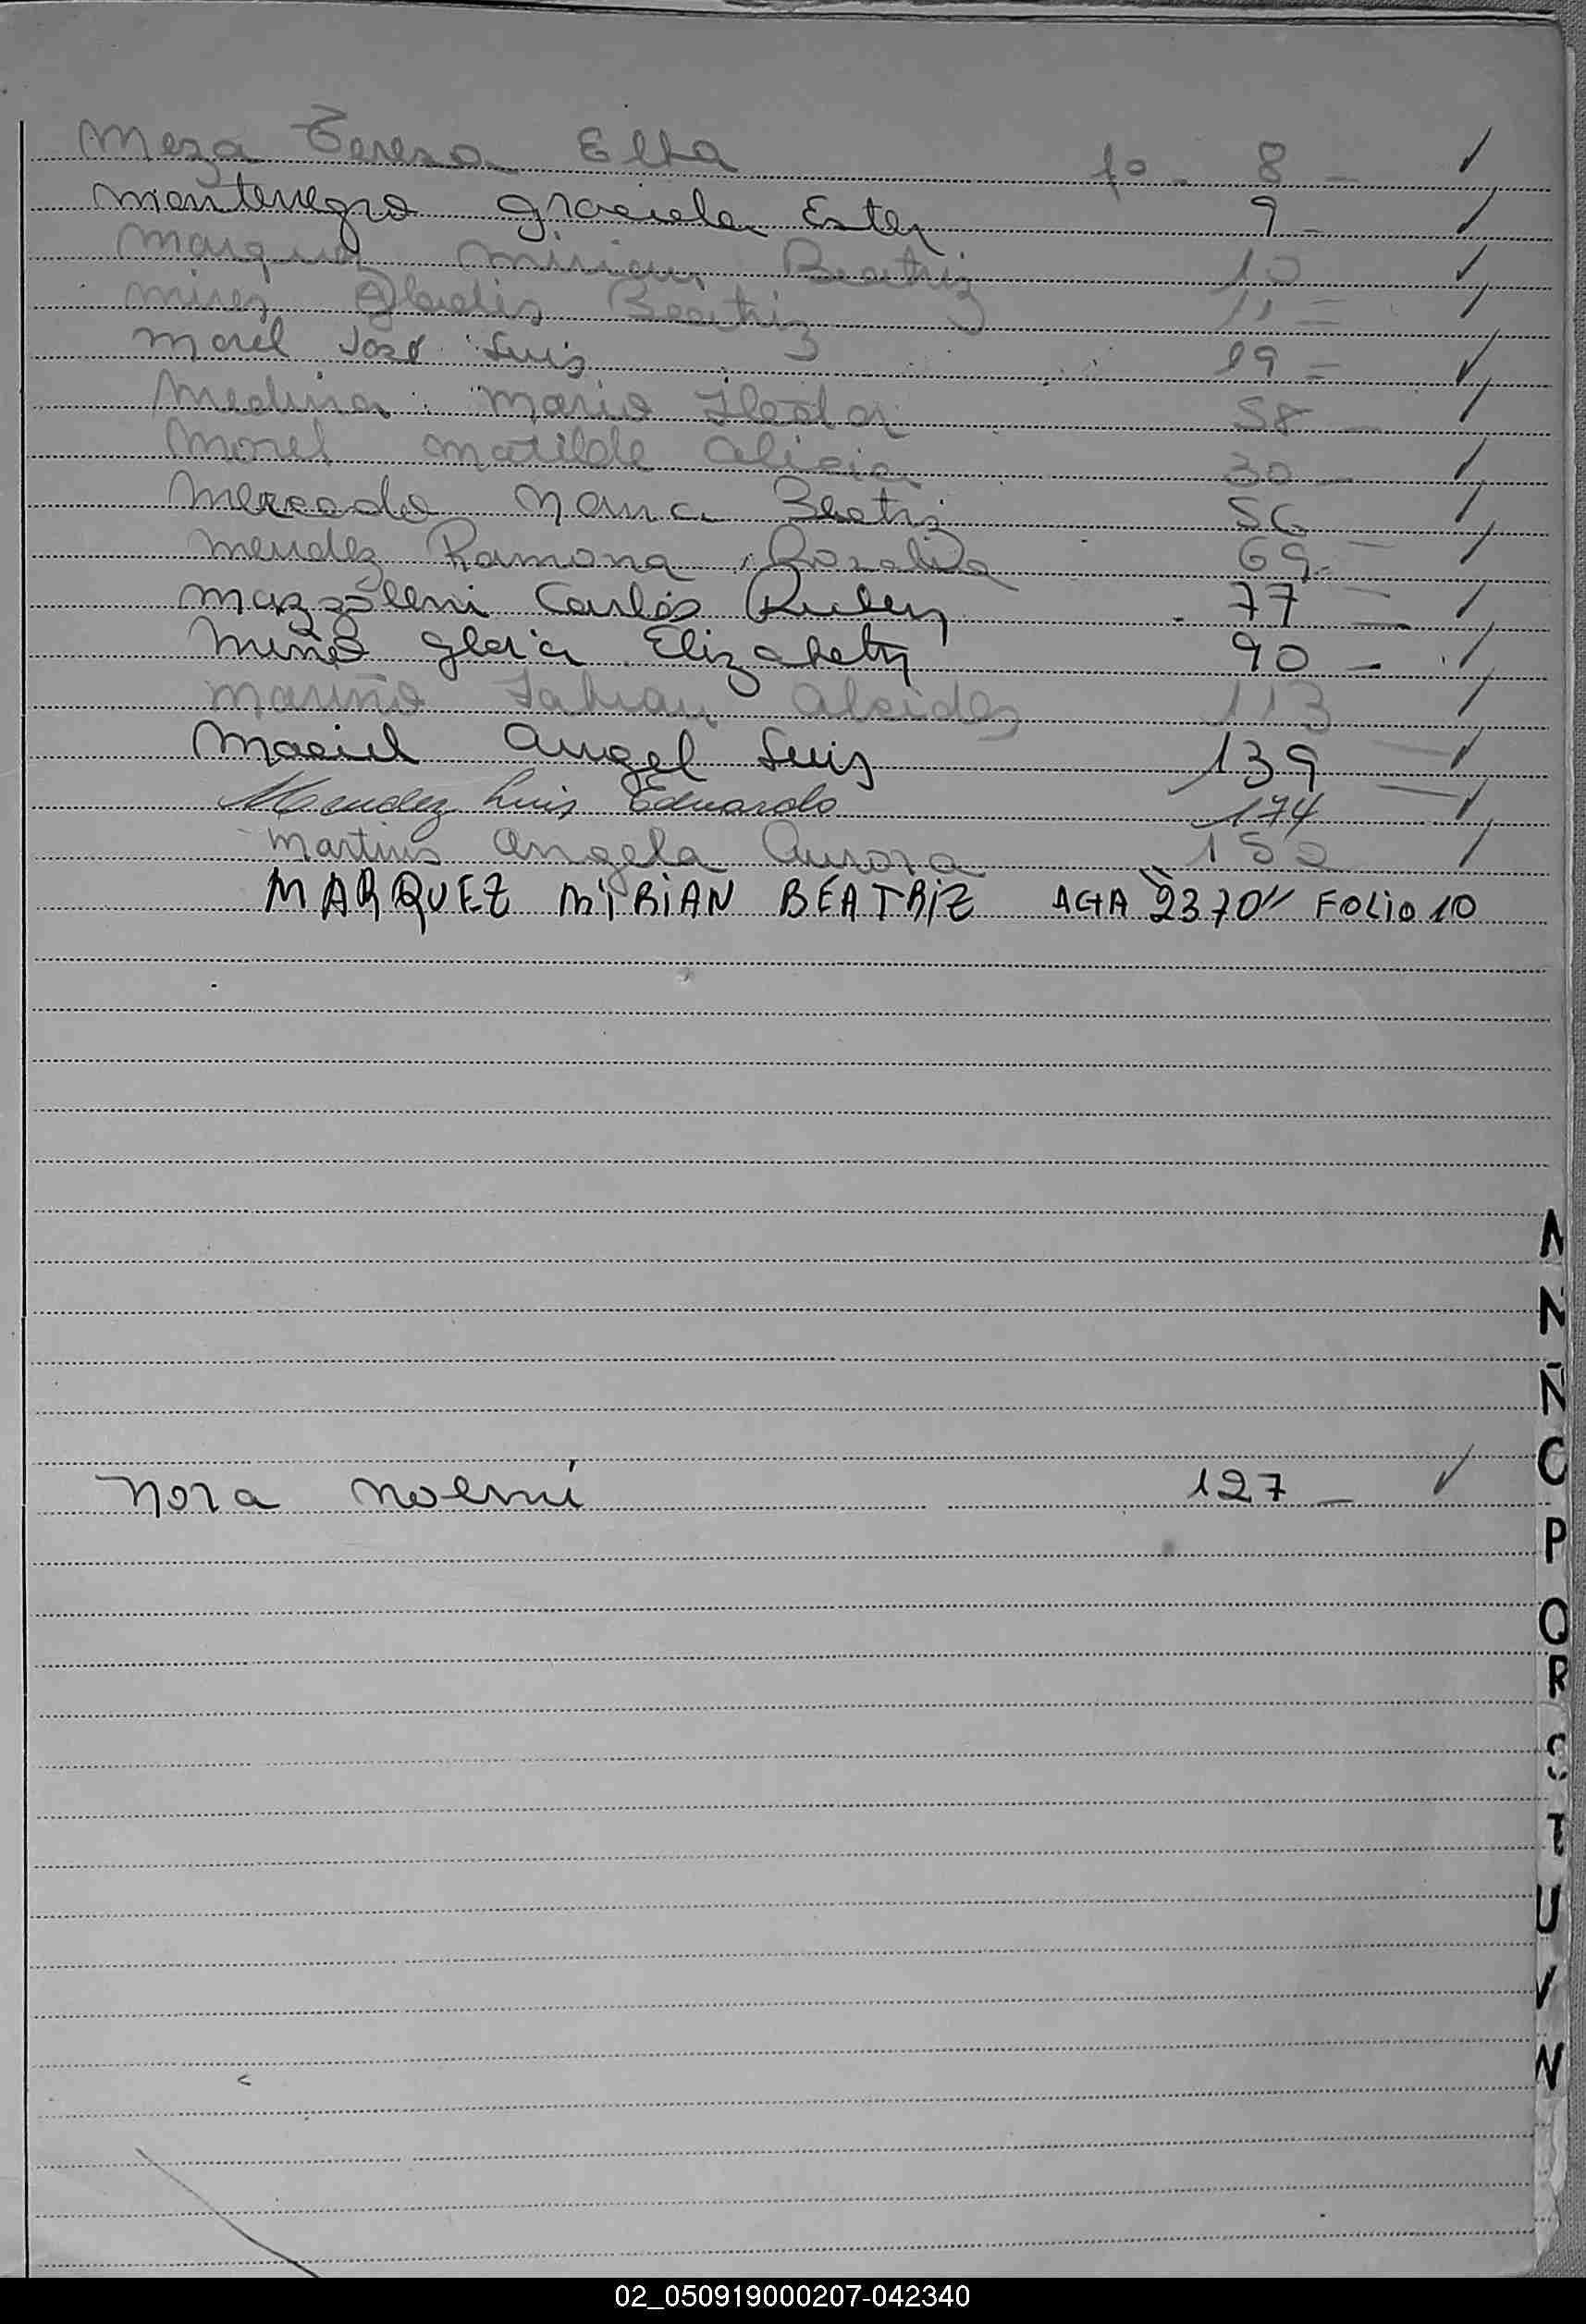 Meza Teresa Elba fº - 8 - ✓
Montenegro Graciela Ester 9 - ✓
Marquez Mirian Beatriz 10 ✓
Mirez Gladis Beatriz 11 = ✓
Morel José Luis 19 = ✓
Medina Mario Hector 58 - ✓
Morel Matilde Alicia 30 - ✓
Mercado Beatriz 56 - ✓
Mendez Ramona Rosalia 69 - ✓
Mazzoleni Carlos Ruben 77 - ✓
Miño Gloria Elizabeth 90 - ✓
Mariño Fabian Alcides 113 ✓
Maciel Angel Luis 139 - ✓
Mendez Luis Eduardo 174 ✓
Martins Angela Aurora 152 ✓
MARQUEZ MIRIAN BEATRIZ ACTA "2370" FOLIO 10
N
Ñ
Nora Noemí 127 - ✓
P
Q
R
S
T
U
V
02_050919000207-042340